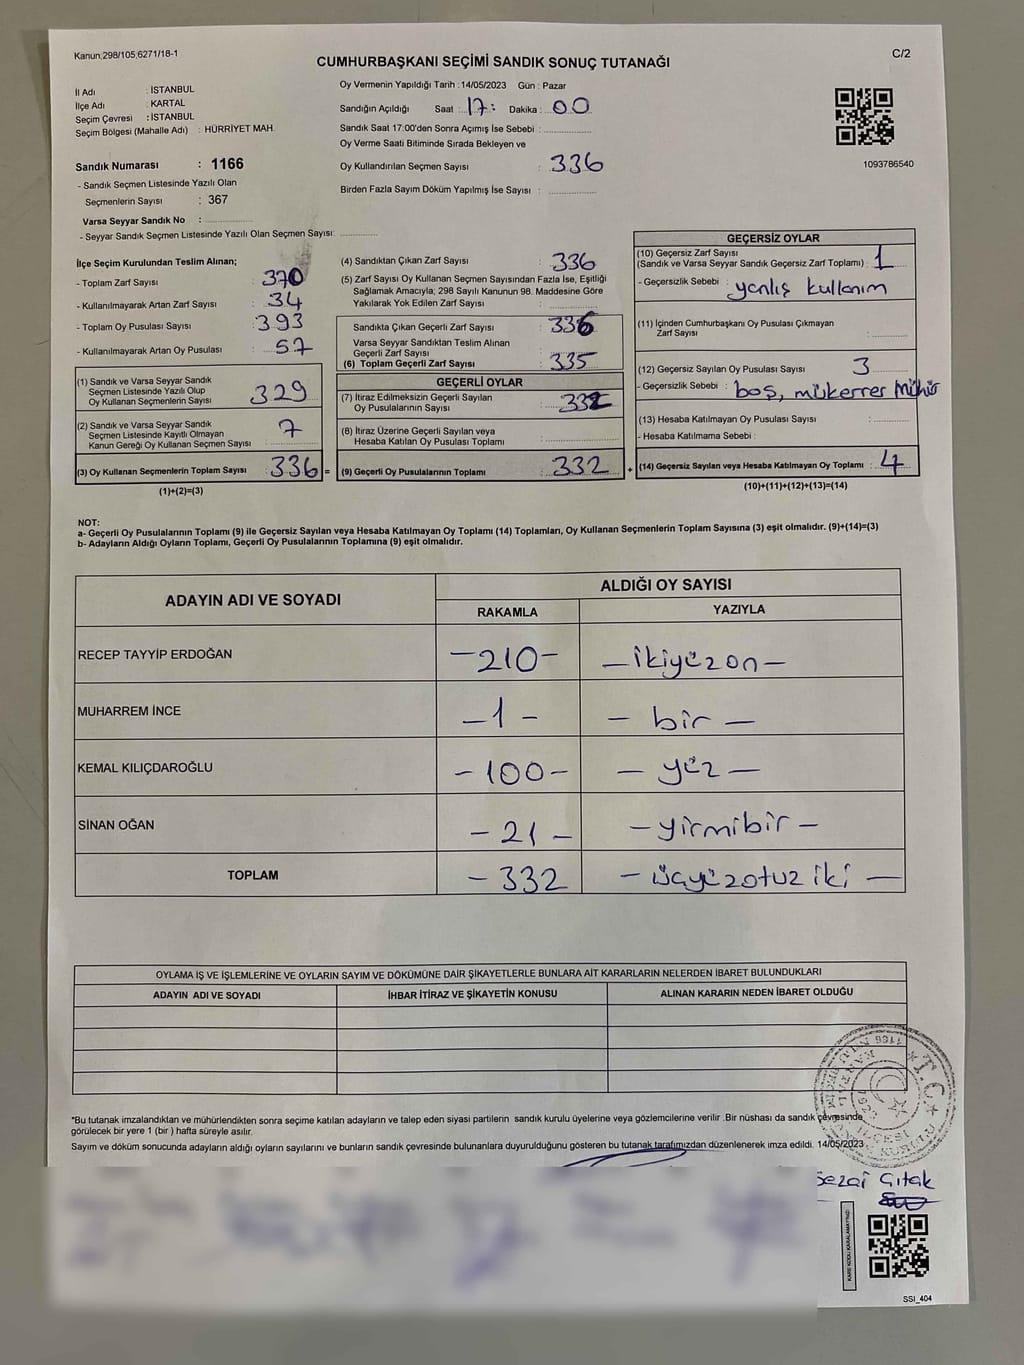 Kanun;298/105;6271/18-1
C/2
CUMHURBAŞKANI SEÇİMİ SANDIK SONUÇ TUTANAĞI
İl Adı : İSTANBUL
İlçe Adı : KARTAL
Seçim Çevresi : İSTANBUL
Seçim Bölgesi (Mahalle Adı) : HÜRRİYET MAH.
Sandık Numarası : 1166
- Sandık Seçmen Listesinde Yazılı Olan
Seçmenlerin Sayısı : 367
Varsa Seyyar Sandık No :
- Seyyar Sandık Seçmen Listesinde Yazılı Olan Seçmen Sayısı:
Oy Vermenin Yapıldığı Tarih :14/05/2023 Gün : Pazar
Sandığın Açıldığı Saat : 17: Dakika : 00
Sandık Saat 17:00'den Sonra Açımış İse Sebebi :
Oy Verme Saati Bitiminde Sırada Bekleyen ve
Oy Kullandırılan Seçmen Sayısı : 336
Birden Fazla Sayım Döküm Yapılmış İse Sayısı :
1093786540
İlçe Seçim Kurulundan Teslim Alınan;
- Toplam Zarf Sayısı : 370
- Kullanılmayarak Artan Zarf Sayısı : 34
- Toplam Oy Pusulası Sayısı : 393
- Kullanılmayarak Artan Oy Pusulası : 57
(1) Sandık ve Varsa Seyyar Sandık
Seçmen Listesinde Yazılı Olup
Oy Kullanan Seçmenlerin Sayısı : 329
(2) Sandık ve Varsa Seyyar Sandık
Seçmen Listesinde Kayıtlı Olmayan
Kanun Gereği Oy Kullanan Seçmen Sayısı : 7
(3) Oy Kullanan Seçmenlerin Toplam Sayısı : 336 =
(1)+(2)=(3)
(4) Sandıktan Çıkan Zarf Sayısı : 336
(5) Zarf Sayısı Oy Kullanan Seçmen Sayısından Fazla İse, Eşitliği
Sağlamak Amacıyla; 298 Sayılı Kanunun 98. Maddesine Göre
Yakılarak Yok Edilen Zarf Sayısı :
Sandıkta Çıkan Geçerli Zarf Sayısı : 336
Varsa Seyyar Sandıktan Teslim Alınan
Geçerli Zarf Sayısı :
(6) Toplam Geçerli Zarf Sayısı : 335
GEÇERLİ OYLAR
(7) İtiraz Edilmeksizin Geçerli Sayılan
Oy Pusulalarının Sayısı : 332
(8) İtiraz Üzerine Geçerli Sayılan veya
Hesaba Katılan Oy Pusulası Toplamı :
(9) Geçerli Oy Pusulalarının Toplamı : 332 +
GEÇERSİZ OYLAR
(10) Geçersiz Zarf Sayısı
(Sandık ve Varsa Seyyar Sandık Geçersiz Zarf Toplamı) : 1
- Geçersizlik Sebebi : yanlış kullanım
(11) İçinden Cumhurbaşkanı Oy Pusulası Çıkmayan
Zarf Sayısı :
(12) Geçersiz Sayılan Oy Pusulası Sayısı : 3
- Geçersizlik Sebebi : boş, mükerrer Mühür
(13) Hesaba Katılmayan Oy Pusulası Sayısı :
- Hesaba Katılmama Sebebi :
(14) Geçersiz Sayılan veya Hesaba Katılmayan Oy Toplamı : 4
(10)+(11)+(12)+(13)=(14)
NOT:
a- Geçerli Oy Pusulalarının Toplamı (9) ile Geçersiz Sayılan veya Hesaba Katılmayan Oy Toplamı (14) Toplamları, Oy Kullanan Seçmenlerin Toplam Sayısına (3) eşit olmalıdır. (9)+(14)=(3)
b- Adayların Aldığı Oyların Toplamı, Geçerli Oy Pusulalarının Toplamına (9) eşit olmalıdır.
ADAYIN ADI VE SOYADI
ALDIĞI OY SAYISI
RAKAMLA YAZIYLA
RECEP TAYYIP ERDOĞAN -210- -ikiyüzon-
MUHARREM İNCE -1- -bir-
KEMAL KILIÇDAROĞLU -100- -yüz-
SİNAN OĞAN -21- -yirmibir-
TOPLAM -332 -üçyüzotuz iki-
OYLAMA İŞ VE İŞLEMLERİNE VE OYLARIN SAYIM VE DÖKÜMÜNE DAİR ŞİKAYETLERLE BUNLARA AİT KARARLARIN NELERDEN İBARET BULUNDUKLARI
ADAYIN ADI VE SOYADI İHBAR İTİRAZ VE ŞİKAYETİN KONUSU ALINAN KARARIN NEDEN İBARET OLDUĞU
*Bu tutanak imzalandıktan ve mühürlendikten sonra seçime katılan adayların ve talep eden siyasi partilerin sandık kurulu üyelerine veya gözlemcilerine verilir .Bir nüshası da sandık çevresinde
görülecek bir yere 1 (bir ) hafta süreyle asılır.
Sayım ve döküm sonucunda adayların aldığı oyların sayılarını ve bunların sandık çevresinde bulunanlara duyurulduğunu gösteren bu tutanak tarafımızdan düzenlenerek imza edildi. 14/05/2023
T.C.
1166
Sezai Çıtak
KARE KODU KARALAMAYINIZ!
SSI_404